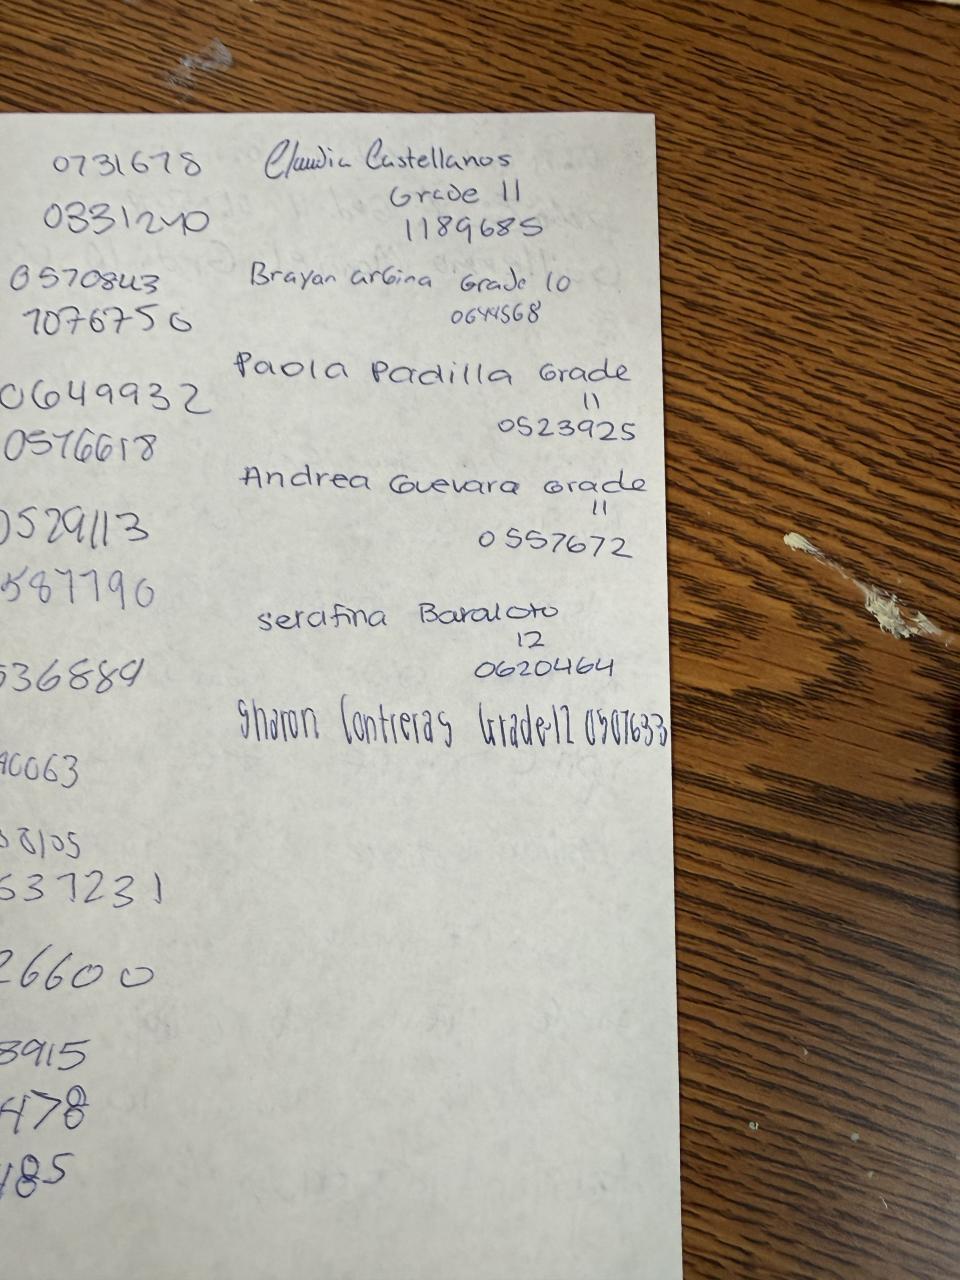 0731678
0331240
0570843
1076756
0649932
0576618
0529113
587790
636889
40063
8105
637231
26600
8915
478
185
Claudia Castellanos
Grade 11
1189685
Brayan arbina Grade 10
0644568
Paola Padilla Grade
11
0523925
Andrea Guevara Grade
11
0557672
Serafina Baraloto
12
0620464
Sharon Contreras Grade-12 0507633